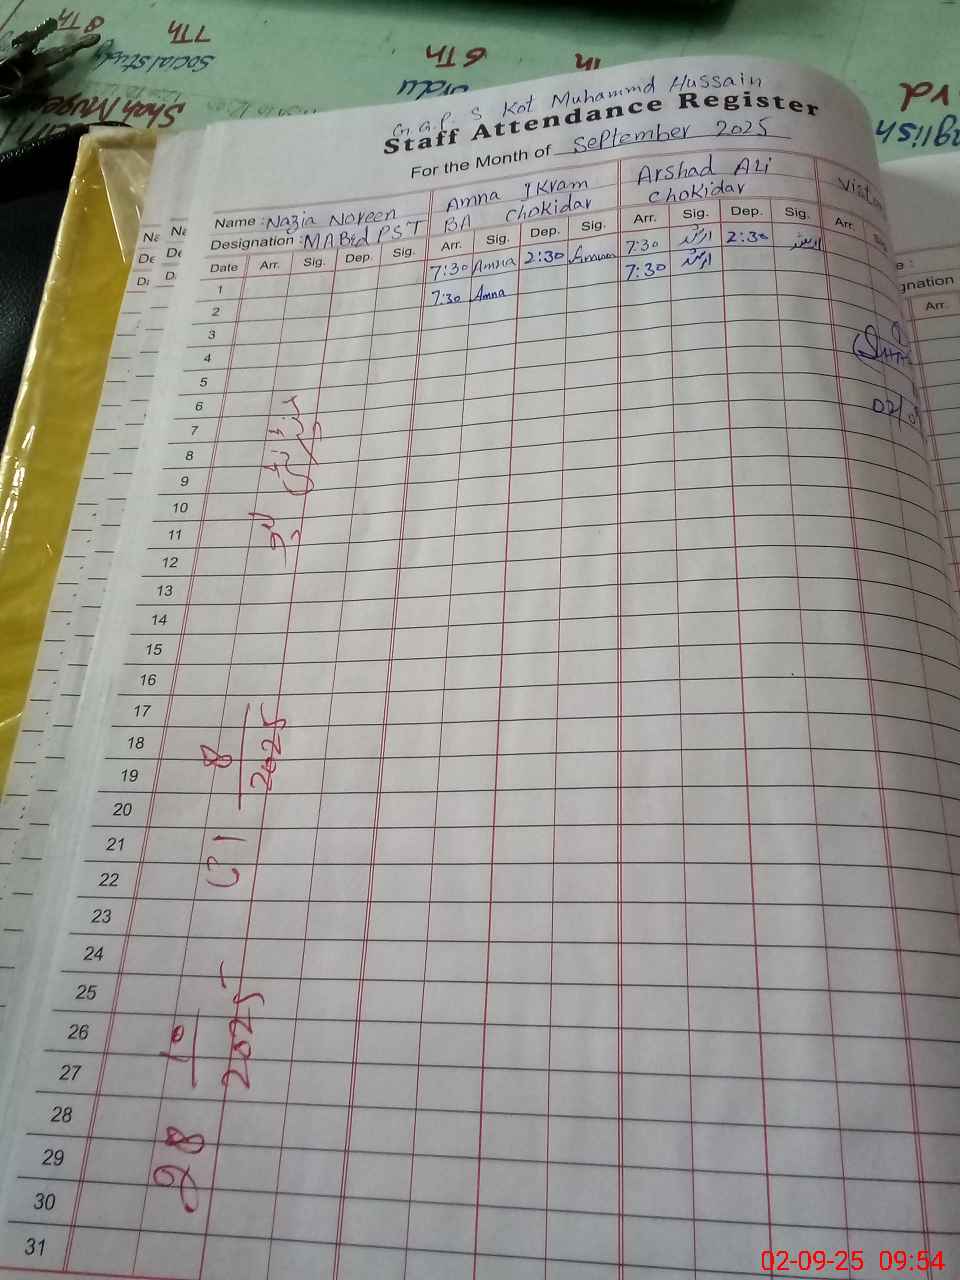 7Th
8Th
Social study
6Th
urdu
G.G.P.S Kot Muhammd Hussain
Staff Attendance Register
For the Month of September 2025
Name : Nazia Noreen
Amna Ikram
Arshad Ali
Designation : MA B.ed PST
BA Chokidar
Chokidar
Date Arr. Sig. Dep. Sig. Arr. Sig. Dep. Sig. Arr. Sig. Dep. Sig. Arr.
1 7:30 Amna 2:30 Amna 7:30 ارشد 2:30 ارشد
2 7:30 Amna 7:30 ارشد
3
4
5
6
7
8
9
10
11
12
13
14
15
16
17
18
19
20
21
22
23
24
25
26
27
28
29
30
31
28 10 2025
31 8 2025
gnation
Arr.
02-09-25 09:54